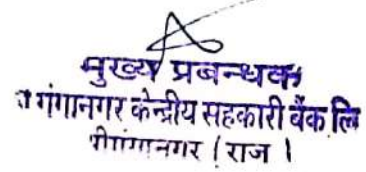 मुख्य प्रबन्धक
गंगानगर केन्द्रीय सहकारी बैंक लि
श्रीगंगानगर ( राज )